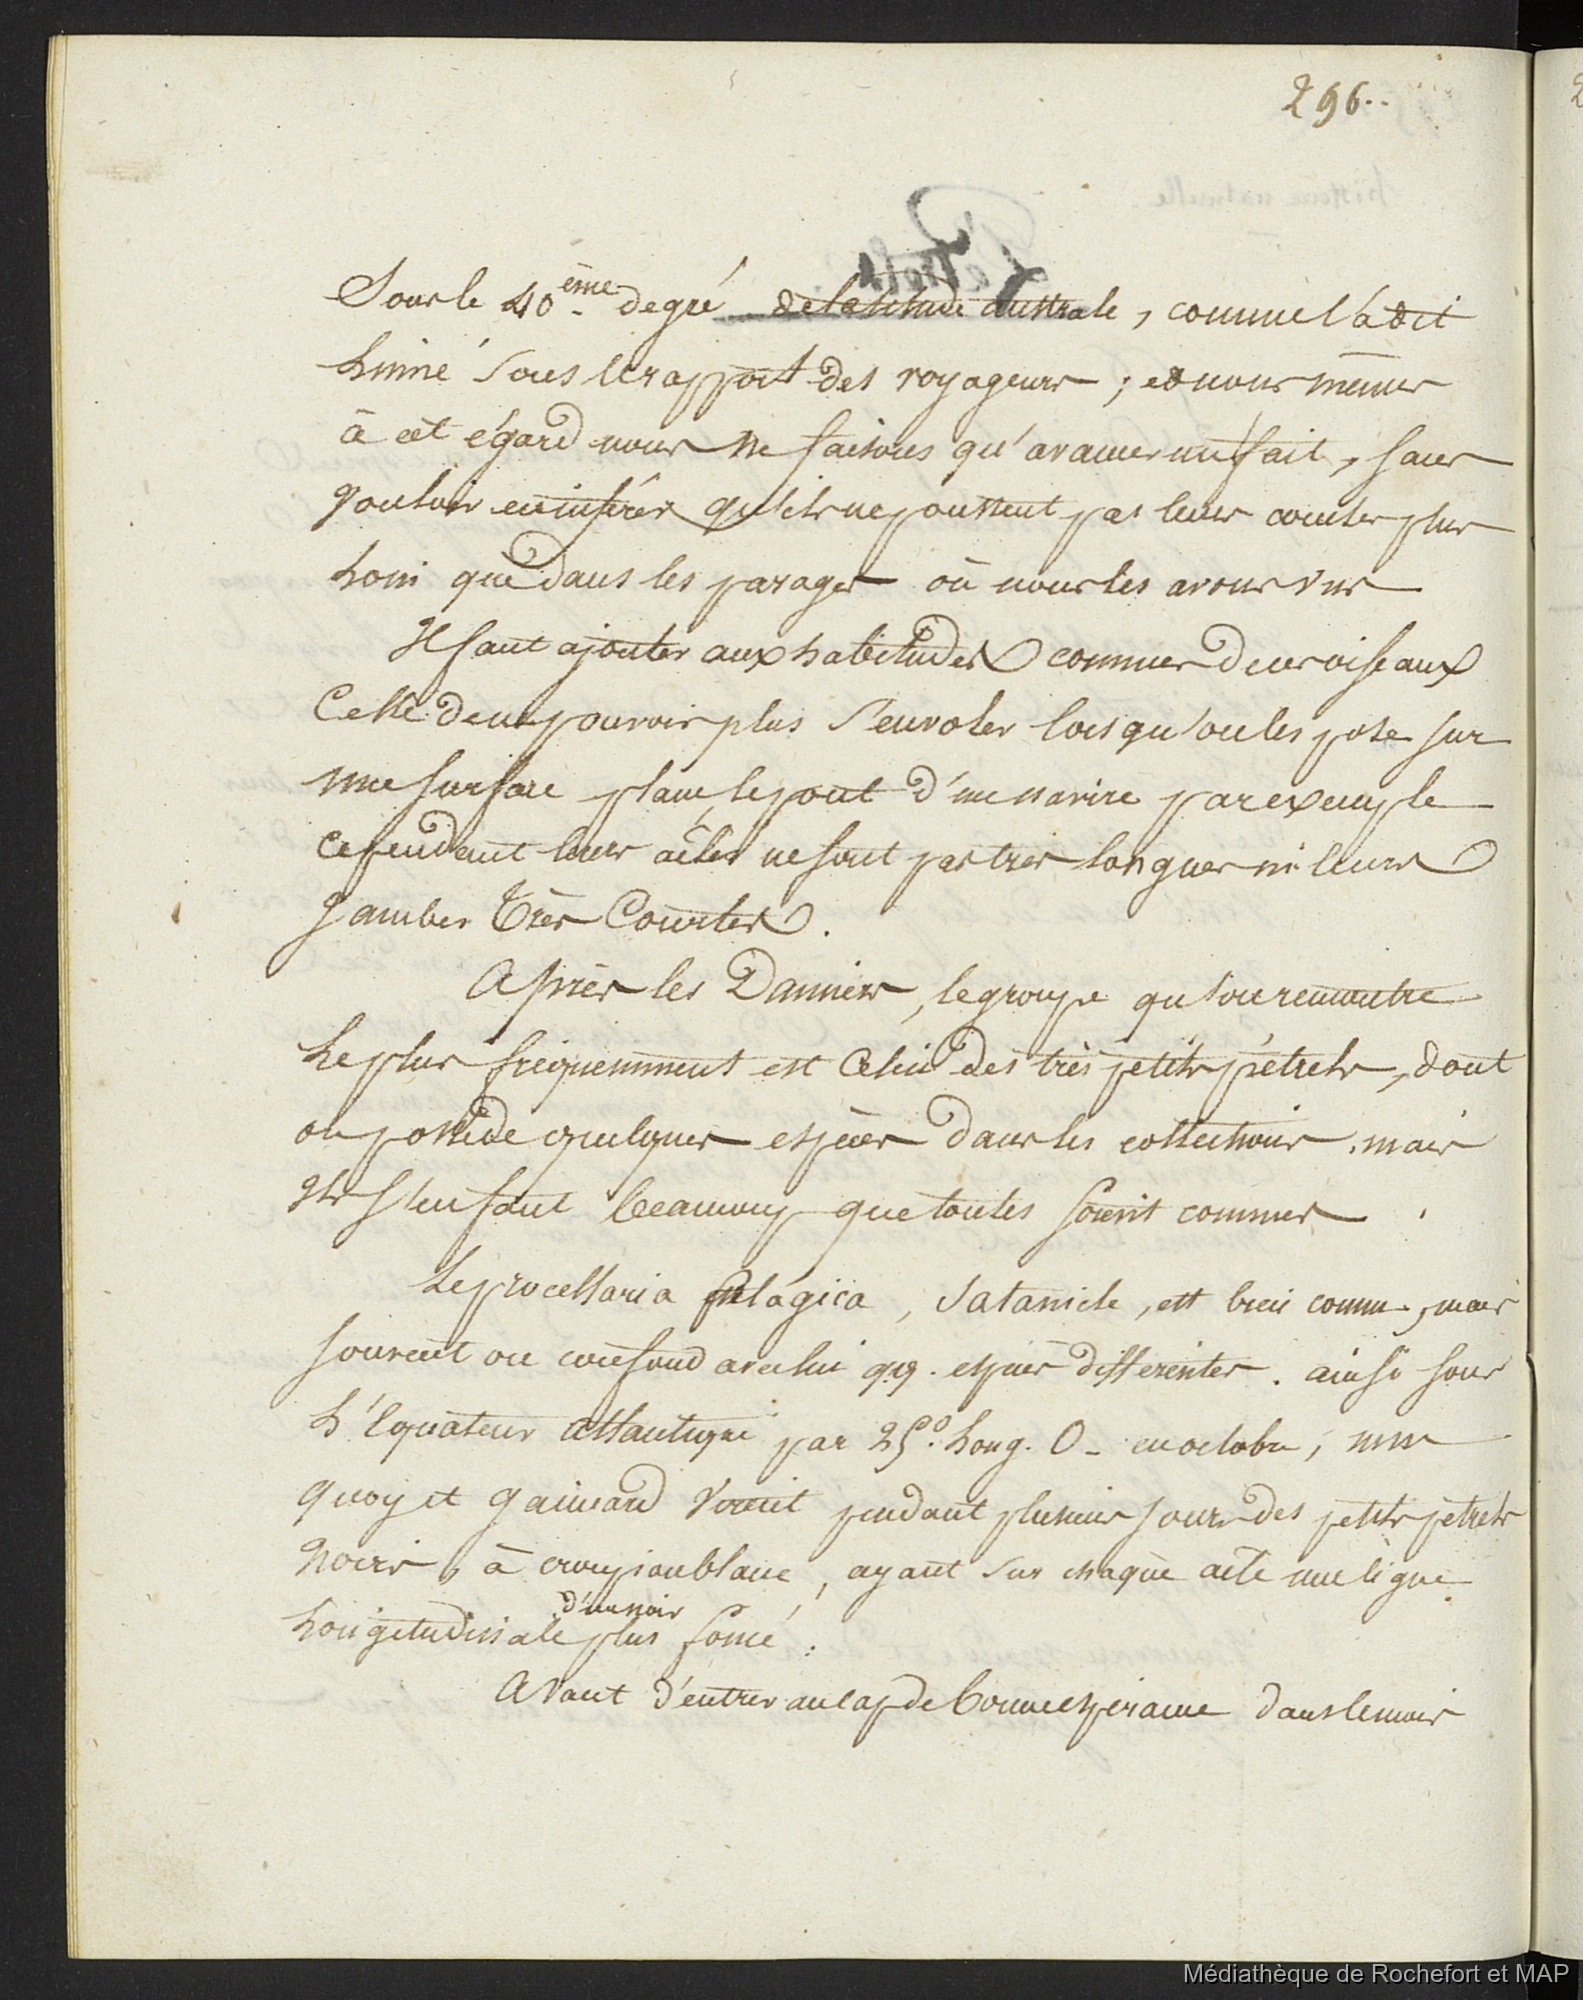 296..
Sous le 40.ème degré de latitude australe, comme l'a dit
Linné sous le rapport des voyageurs ; et nous mêmes
à cet égard nous ne faisons qu'avancer un fait, sans
Vouloir en inférer qu'ils ne poussent pas leurs courses plus
Loin que dans les parages où nous les avons vus
Il faut ajouter aux habitudes connues de ces oiseaux
Celle de ne pouvoir plus s'envoler lorsqu'on les pose sur
une surface plane, le pont d'un navire par exemple
Cependant leurs aîles ne sont pas très longues ni leurs
Jambes très Courtes.
Après les Damiers, le groupe qu'on rencontre
Le plus fréquemment est Celui des très petits pétrels, dont
on possède quelques espèces dans les collections. mais
Il s'en faut beaucoup que toutes soient connues.
Le procellaria pelagica, Satanicle, est bien connu, mais
souvent on confond avec lui qq. espèces différentes. ainsi sous
L'Equateur Atlantique par 25°. Long. O- en octobre, MM
Quoy et Gaimard virent pendant plusieurs jours des petits pétrels
Noirs, à croupion blanc, ayant sur chaque aile une ligne
Longitudinale d'un noir plus foncé.
Avant d'entrer au Cap de bonne espérance dans le mois
Médiathèque de Rochefort et MAP